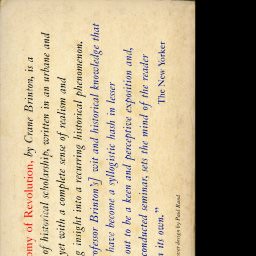 omy of Revolution, by Crane Brinton, is a
of historical scholarship, written in an urbane and
yet with a complete sense of realism and
g insight into a recurring historical phenomenon.
ofessor Brinton's] wit and historical knowledge that
have become a syllogistic hash in lesser
out to be a keen and perceptive exposition and,
conducted seminar, sets the mind of the reader
n its own."
The New Yorker
over design by Paul Rand